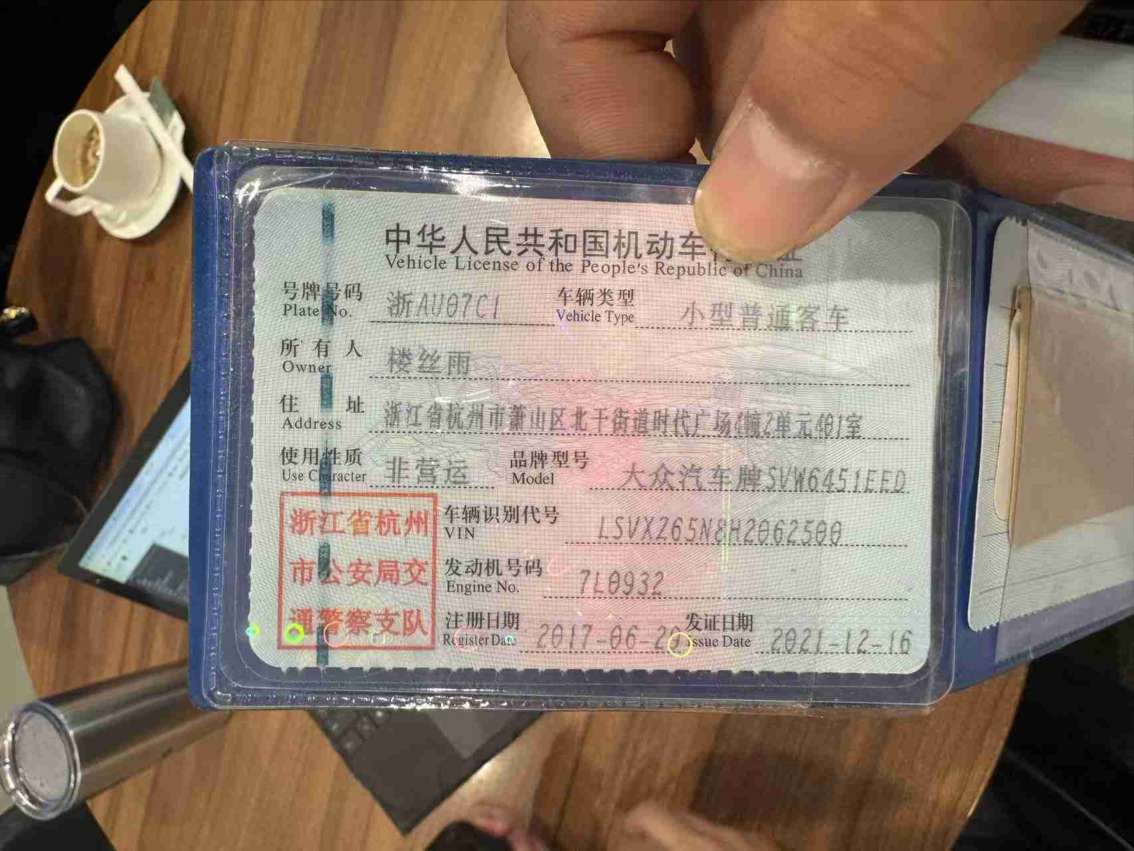 中华人民共和国机动车行驶证
Vehicle License of the People's Republic of China
号牌号码 浙AU07C1 车辆类型 小型普通客车
Plate No. Vehicle Type
所有人 楼丝雨
Owner
住址 浙江省杭州市萧山区北干街道时代广场4幢2单元401室
Address
使用性质 非营运 品牌型号 大众汽车牌SVW6451EED
Use Character Model
浙江省杭州 车辆识别代号 LSVXZ65N8H2062500
VIN
市公安局交 发动机号码 7L0932
Engine No.
通警察支队 注册日期 2017-06-20 发证日期 2021-12-16
Register Date Issue Date